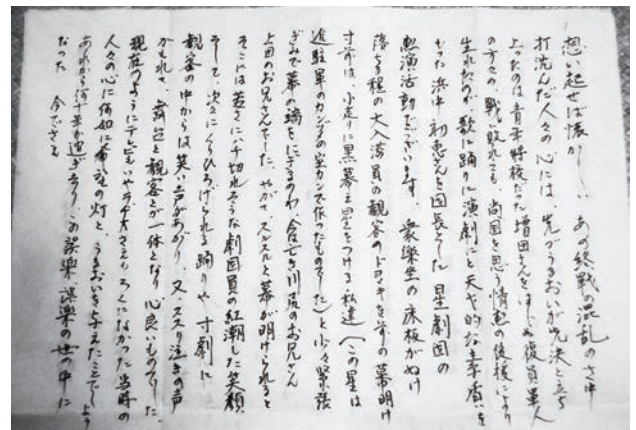 想い起せば懐かしい あの終戦の混乱のさ中
打沈んだ人々の心には、先づうるおいが先決と立ち
上ったのは青年将校だった増田さんをはじめ復員軍人
の方々の、戦い敗れても尚国を思う情熱の後援により
生れたのが、歌に踊りに演劇にと天才的な素質を
もった浜中初恵さんを団長とした星劇団の
熱演活動でございます。衆楽坐の床板がぬけ
落ちる程の大入満員の観客のドヨメキを前の幕明け
寸前は、小走に黒幕に星をつける私達(この星は
進駐軍のカンヅメの空カンで作ったものでした)と少々緊張
ぎみで幕の端をにぎるのわ、今は亡き川尻のお兄さん
上田のお兄さんでした。やがて、スルスルと幕が明けられると
そこには若さに千切れそうな劇団員の紅潮した笑顔、
そして、次々にくりひろげられる踊りや寸劇に
観客の中からは笑い声があがり、又、ススリ泣きの声
がもれて、舞台と観客とが一体となり心良いものでした。
現在のようにテレビもいやラヂオさえろくになかった当時の
人々の心に何如に希望の灯と、うるおいを与えたことでしょう
あれから何十年か過ぎ去りこの娯楽娯楽の世の中に
だった 今でさえ